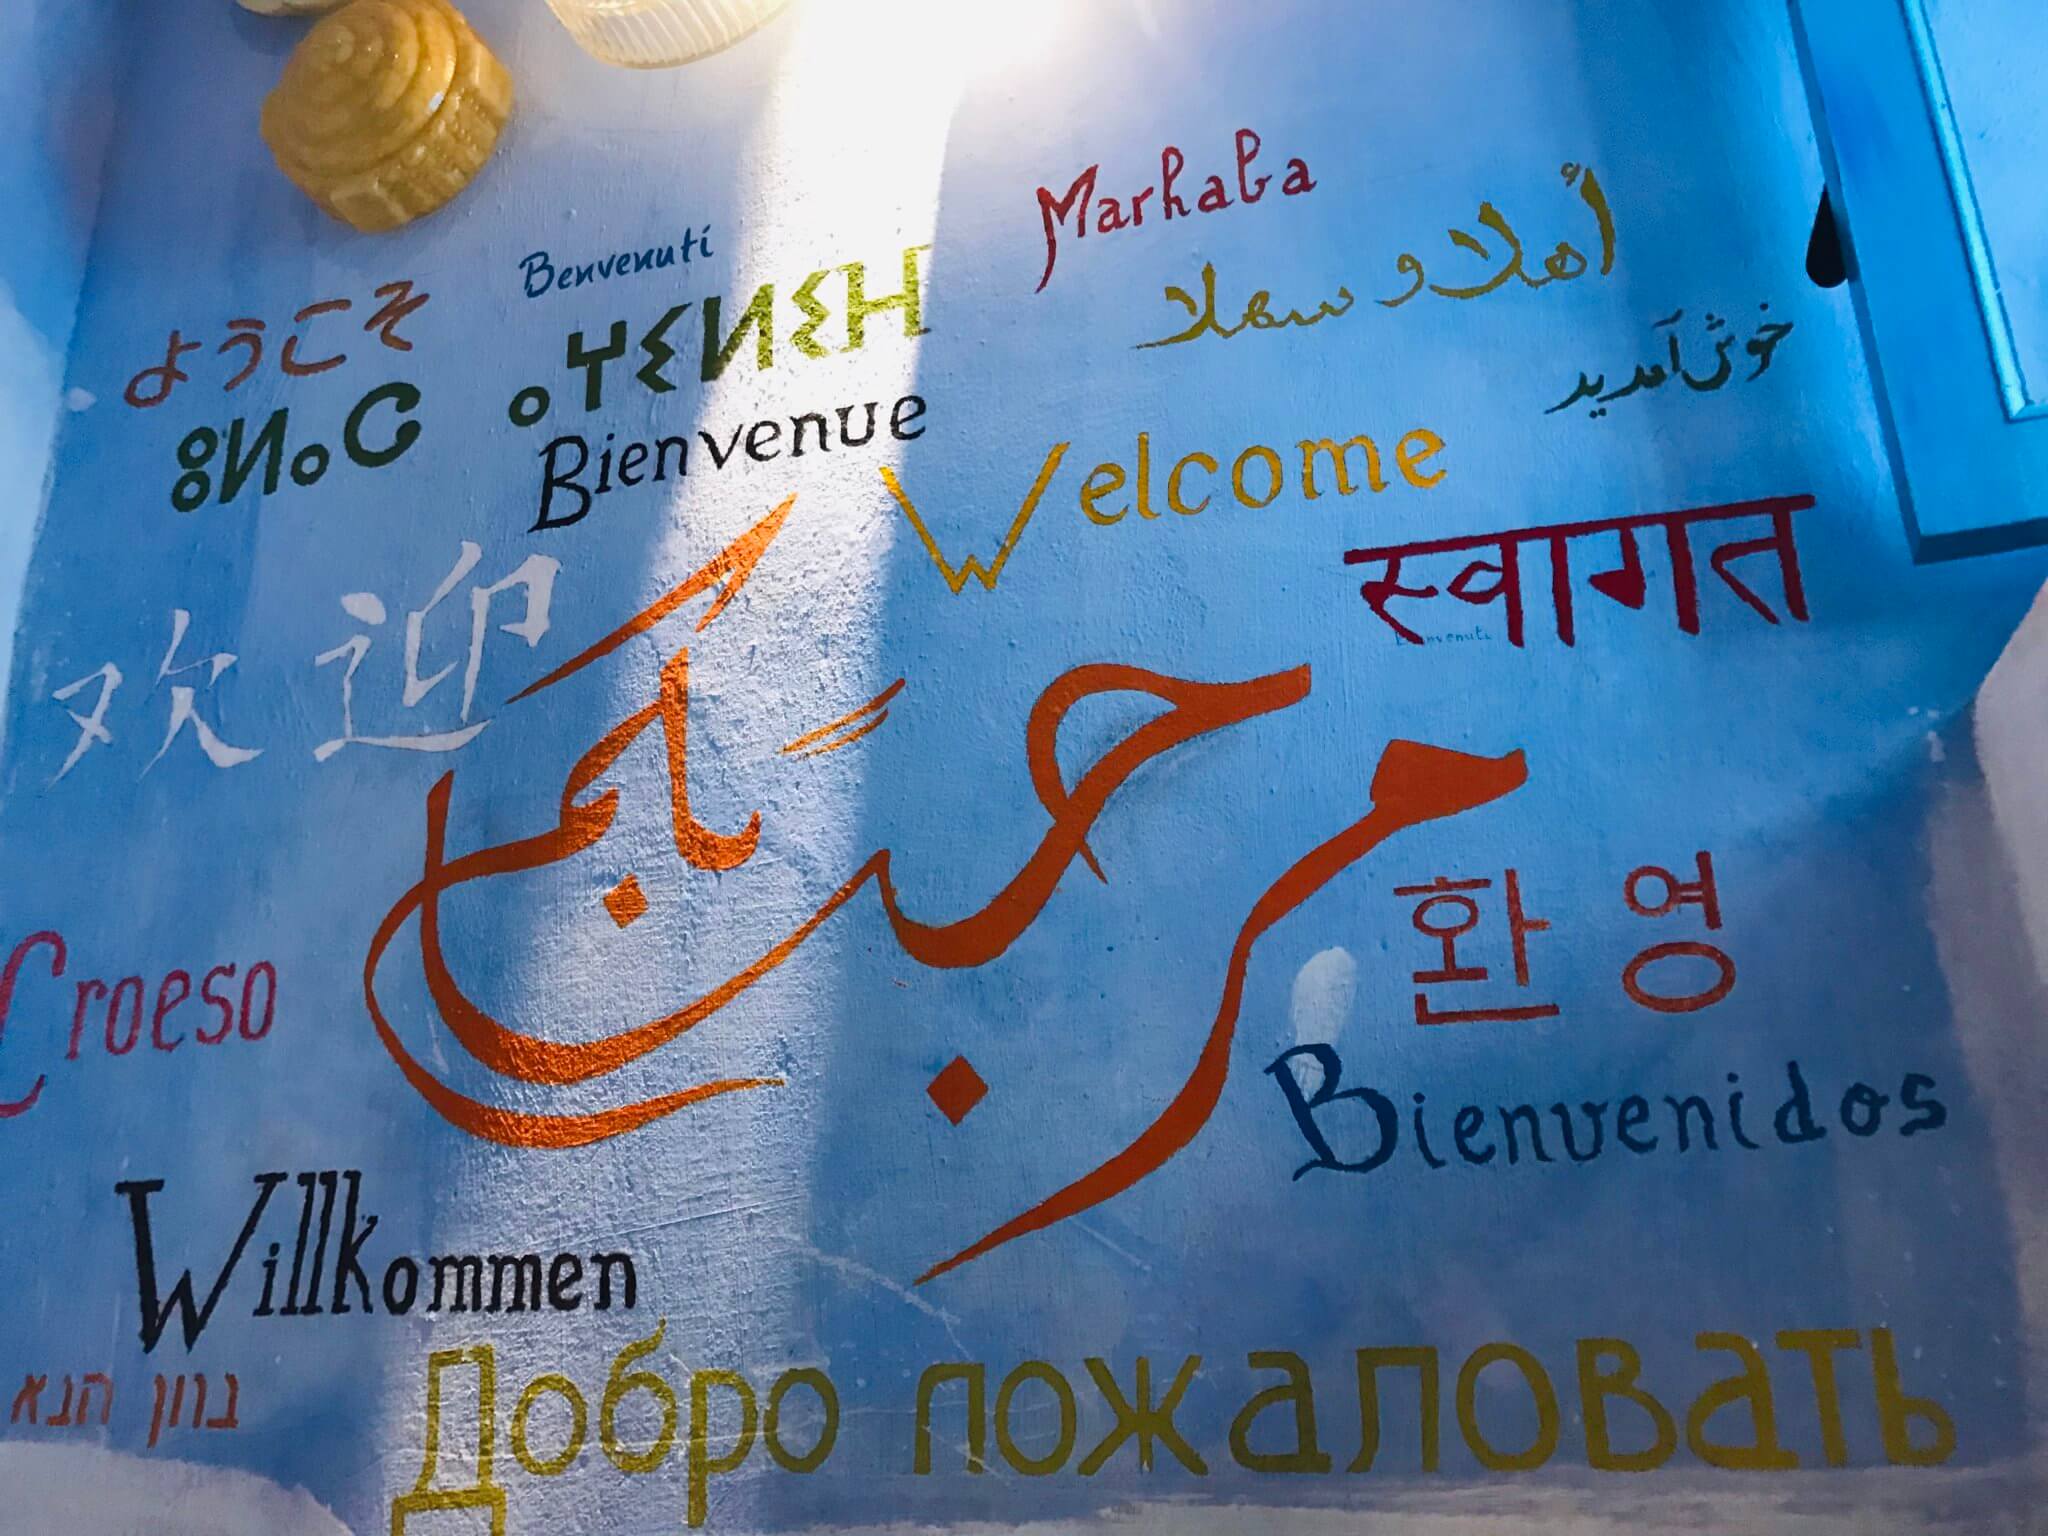 Marhaba
أهلا و سهلا
Benvenuti
ようこそ
ⵓⵍⴰⵎ ⴰⵖⵉⵍⵉⴼ
خوش آمدید
Bienvenue
Welcome
स्वागत
Benvenuti
欢迎
مرحباً بكم
환영
Croeso
Bienvenidos
Willkommen
נוון הנא
Добро пожаловать